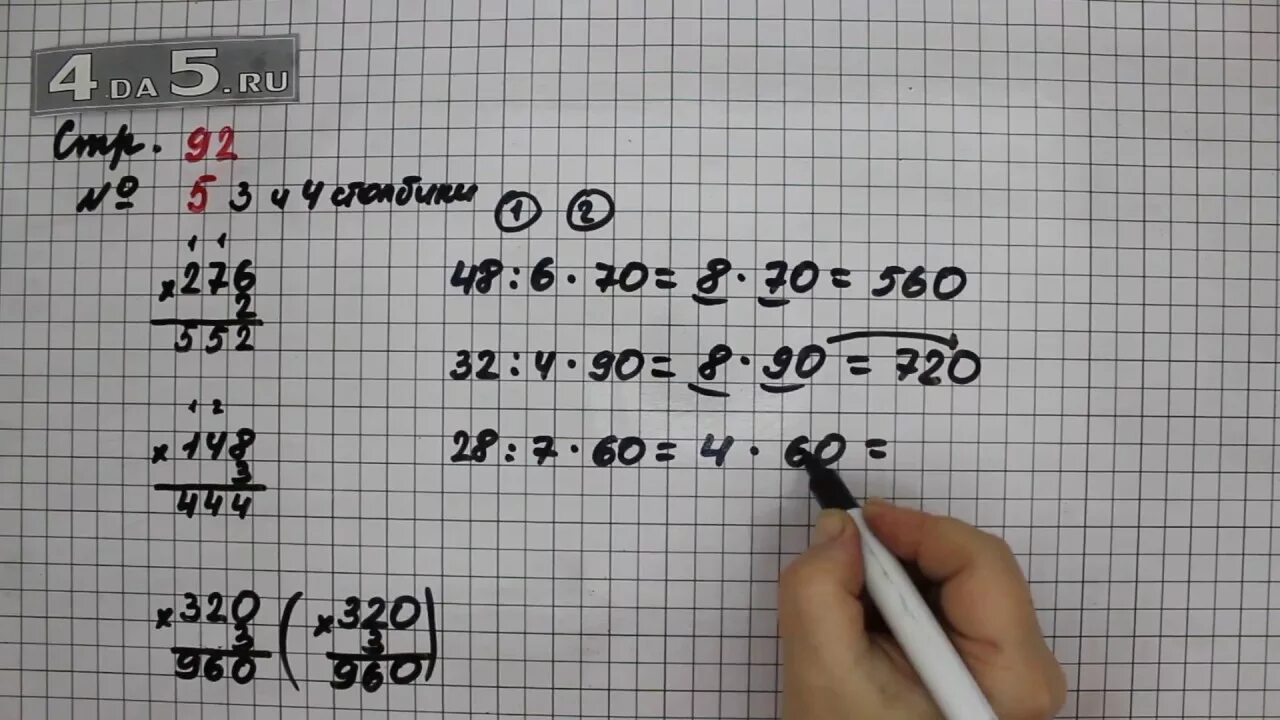 4DA5.RU
Стр. 92
№ 5 3 и 4 столбики
1 2
1 1
× 276
2
552
1 2
× 148
3
444
× 320
3
960
( × 320
3
960 )
48 : 6 · 70 = 8 · 70 = 560
32 : 4 · 90 = 8 · 90 = 720
28 : 7 · 60 = 4 · 60 =